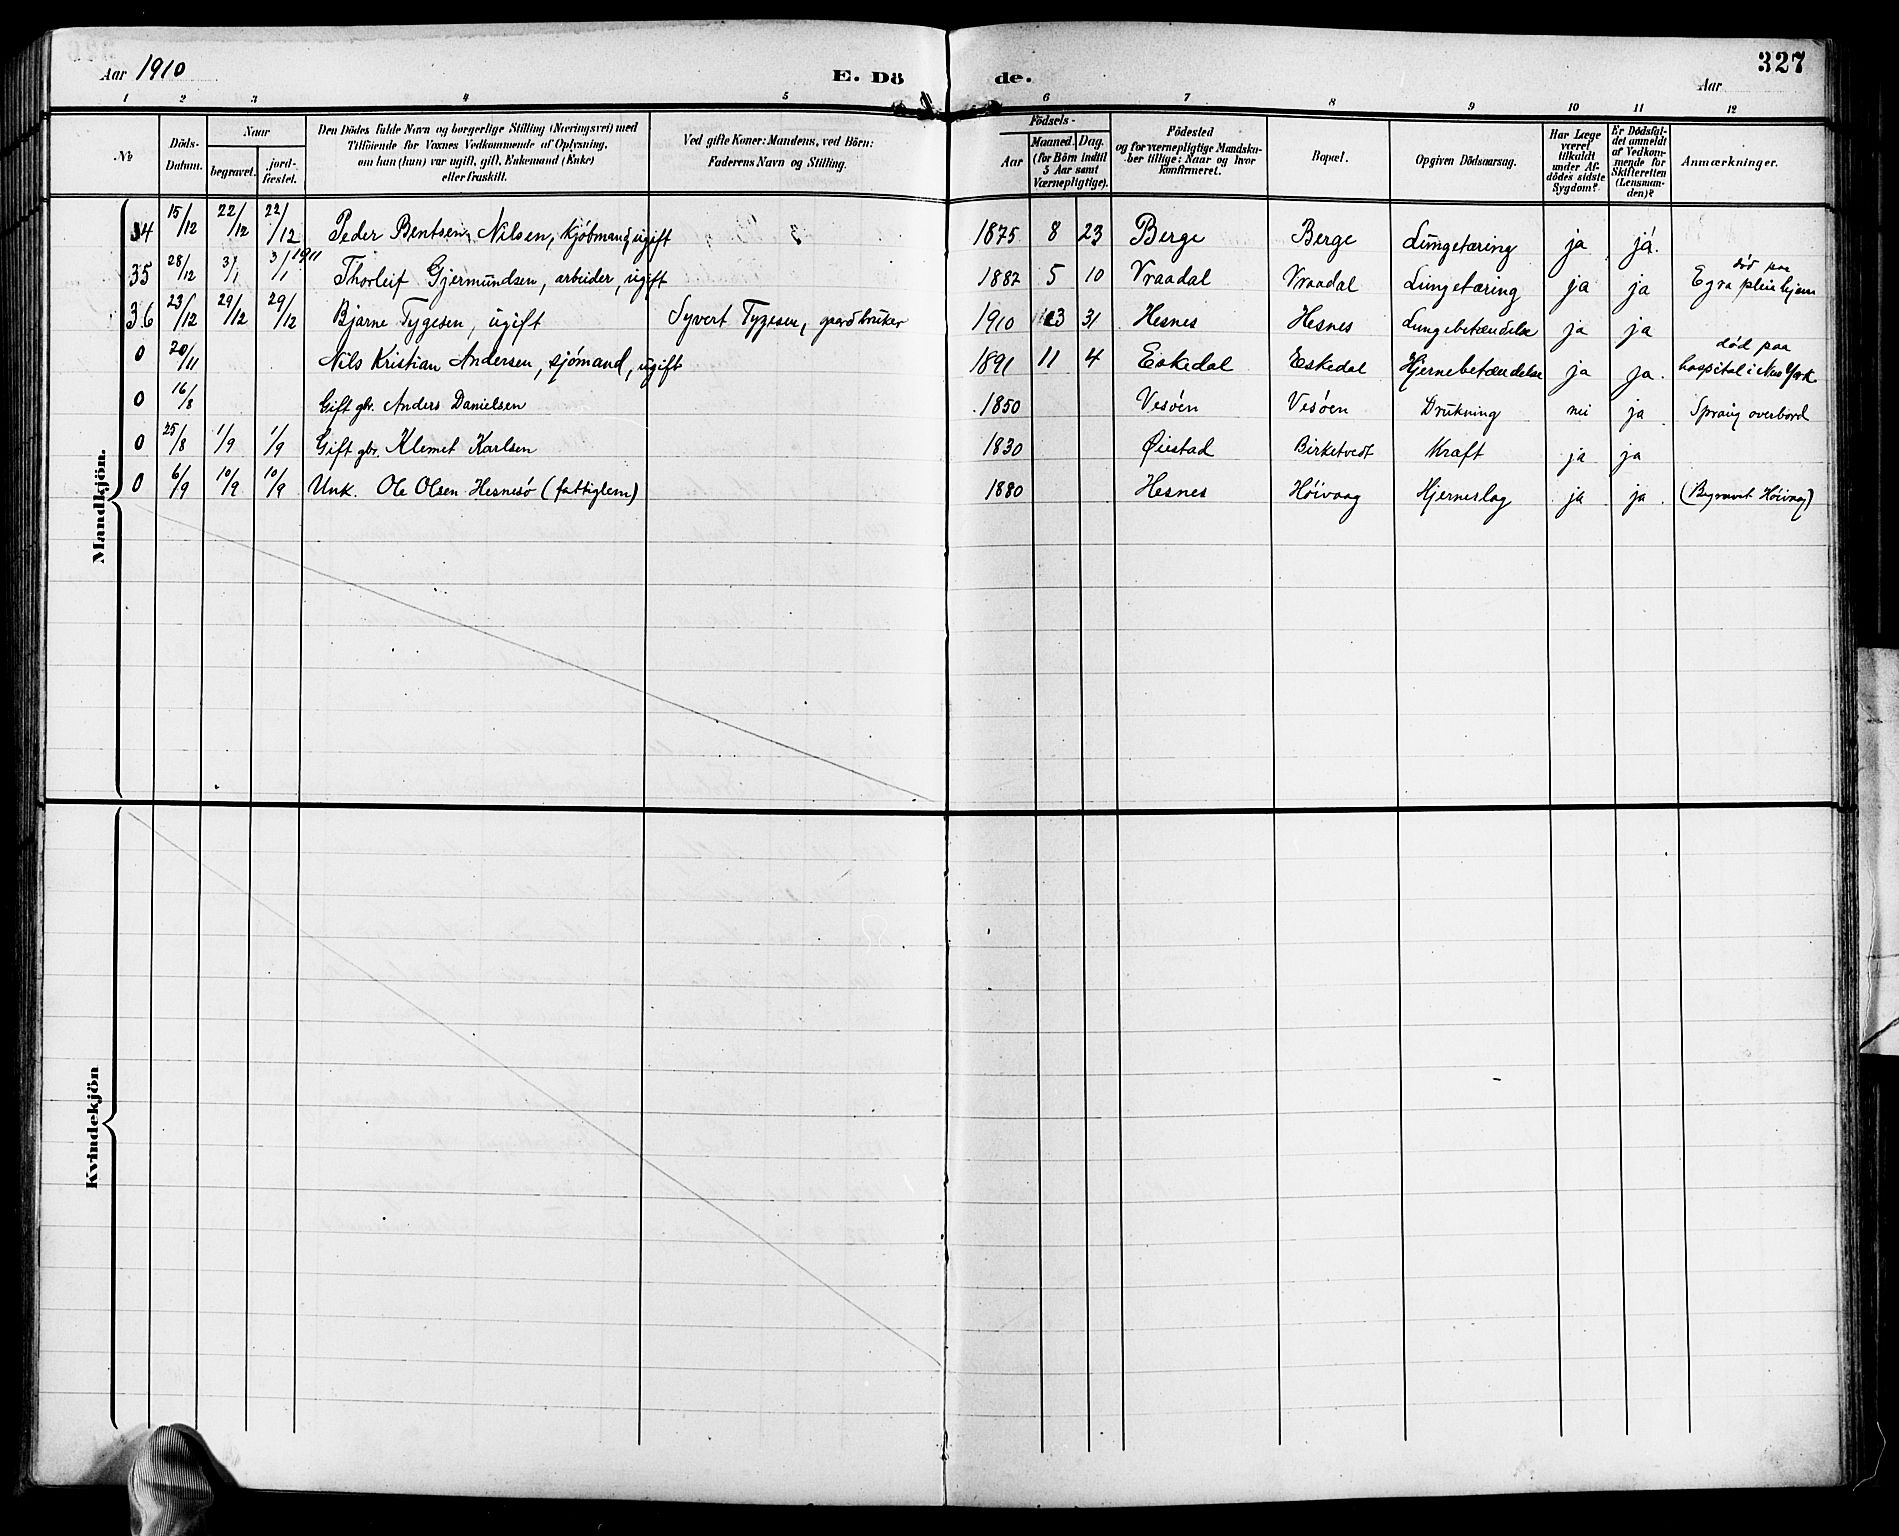 Aar 1910
E. Dö
de.
327
Aar
1 2 3 4 5 6 7 8 9 10 11 12
№
Döds-Datum.
Naar
begravet.
jord-fæstet.
Den Dödes fulde Navn og borgerlige Stilling (Næringsvei) med
Tilföiende for Voxnes Vedkommende af Oplysning,
om han (hun) var ugift, gift, Enkemand (Enke)
eller fraskilt.
Ved gifte Koner: Mandens, ved Börn:
Faderens Navn og Stilling.
Födsels-
Aar
Maaned. Dag.
(for Börn indtil
5 Aar samt
Værnepligtige).
Födested
og for værnepligtige Mandska-
ber tillige: Naar og hvor
konfirmeret.
Bopæl.
Opgiven Dödsaarsag.
Har Læge
været
tilkaldt
under Af-
dödes sidste
Sygdom?
Er Dödsfal-
det anmeldt
af Vedkom-
mende for
Skifteretten
(Lensman-
den)?
Anmærkninger.
Mandkjön.
34 15/12 22/12 22/12 Peder Bentsen Nilsen, kjöbmand, ugift 1875 8 23 Berge Berge Lungetæring ja ja.
35 28/12 3/1 3/1 1911 Thorleif Gjermundsen, arbeider, ugift 1887 5 10 Vraadal Vraadal Lungetæring ja ja død paa Egra pleiehjem
36 23/12 29/12 29/12 Bjarne Tygesen, ugift Syvert Tygesen, gardbruker 1910 3 31 Hesnes Hesnes Lungebetændelse ja ja
0 20/11 Nils Kristian Andersen, sjömand, ugift 1891 11 4 Eskedal Eskedal Hjernebetændelse ja ja. død paa hospital i New York
0 16/8 Gift gbr. Anders Danielsen 1850 Vesöen Vesöen Drukning nei ja Sprang overbord
0 25/8 1/9 1/9 Gift gbr. Klemet Karlsen 1830 Øiestad Birketvedt Kraft ja ja
0 6/9 10/9 10/9 Unk. Ole Olsen Hesnesö (fattiglem) 1880 Hesnes Höivaag Hjerneslag ja ja (Begravet Höivaag)
Kvindekjön